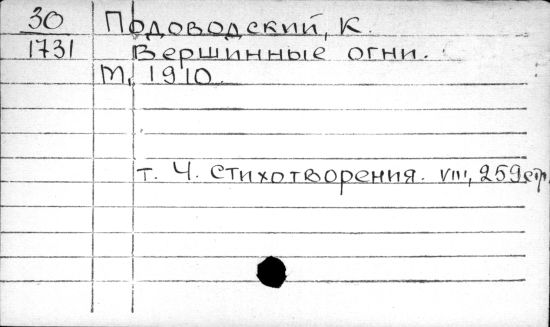 30 Подоводский, К.
1731 Вершинные огни.
М, 1910.
т. Ч. Стихотворения. VIII, 259стр.